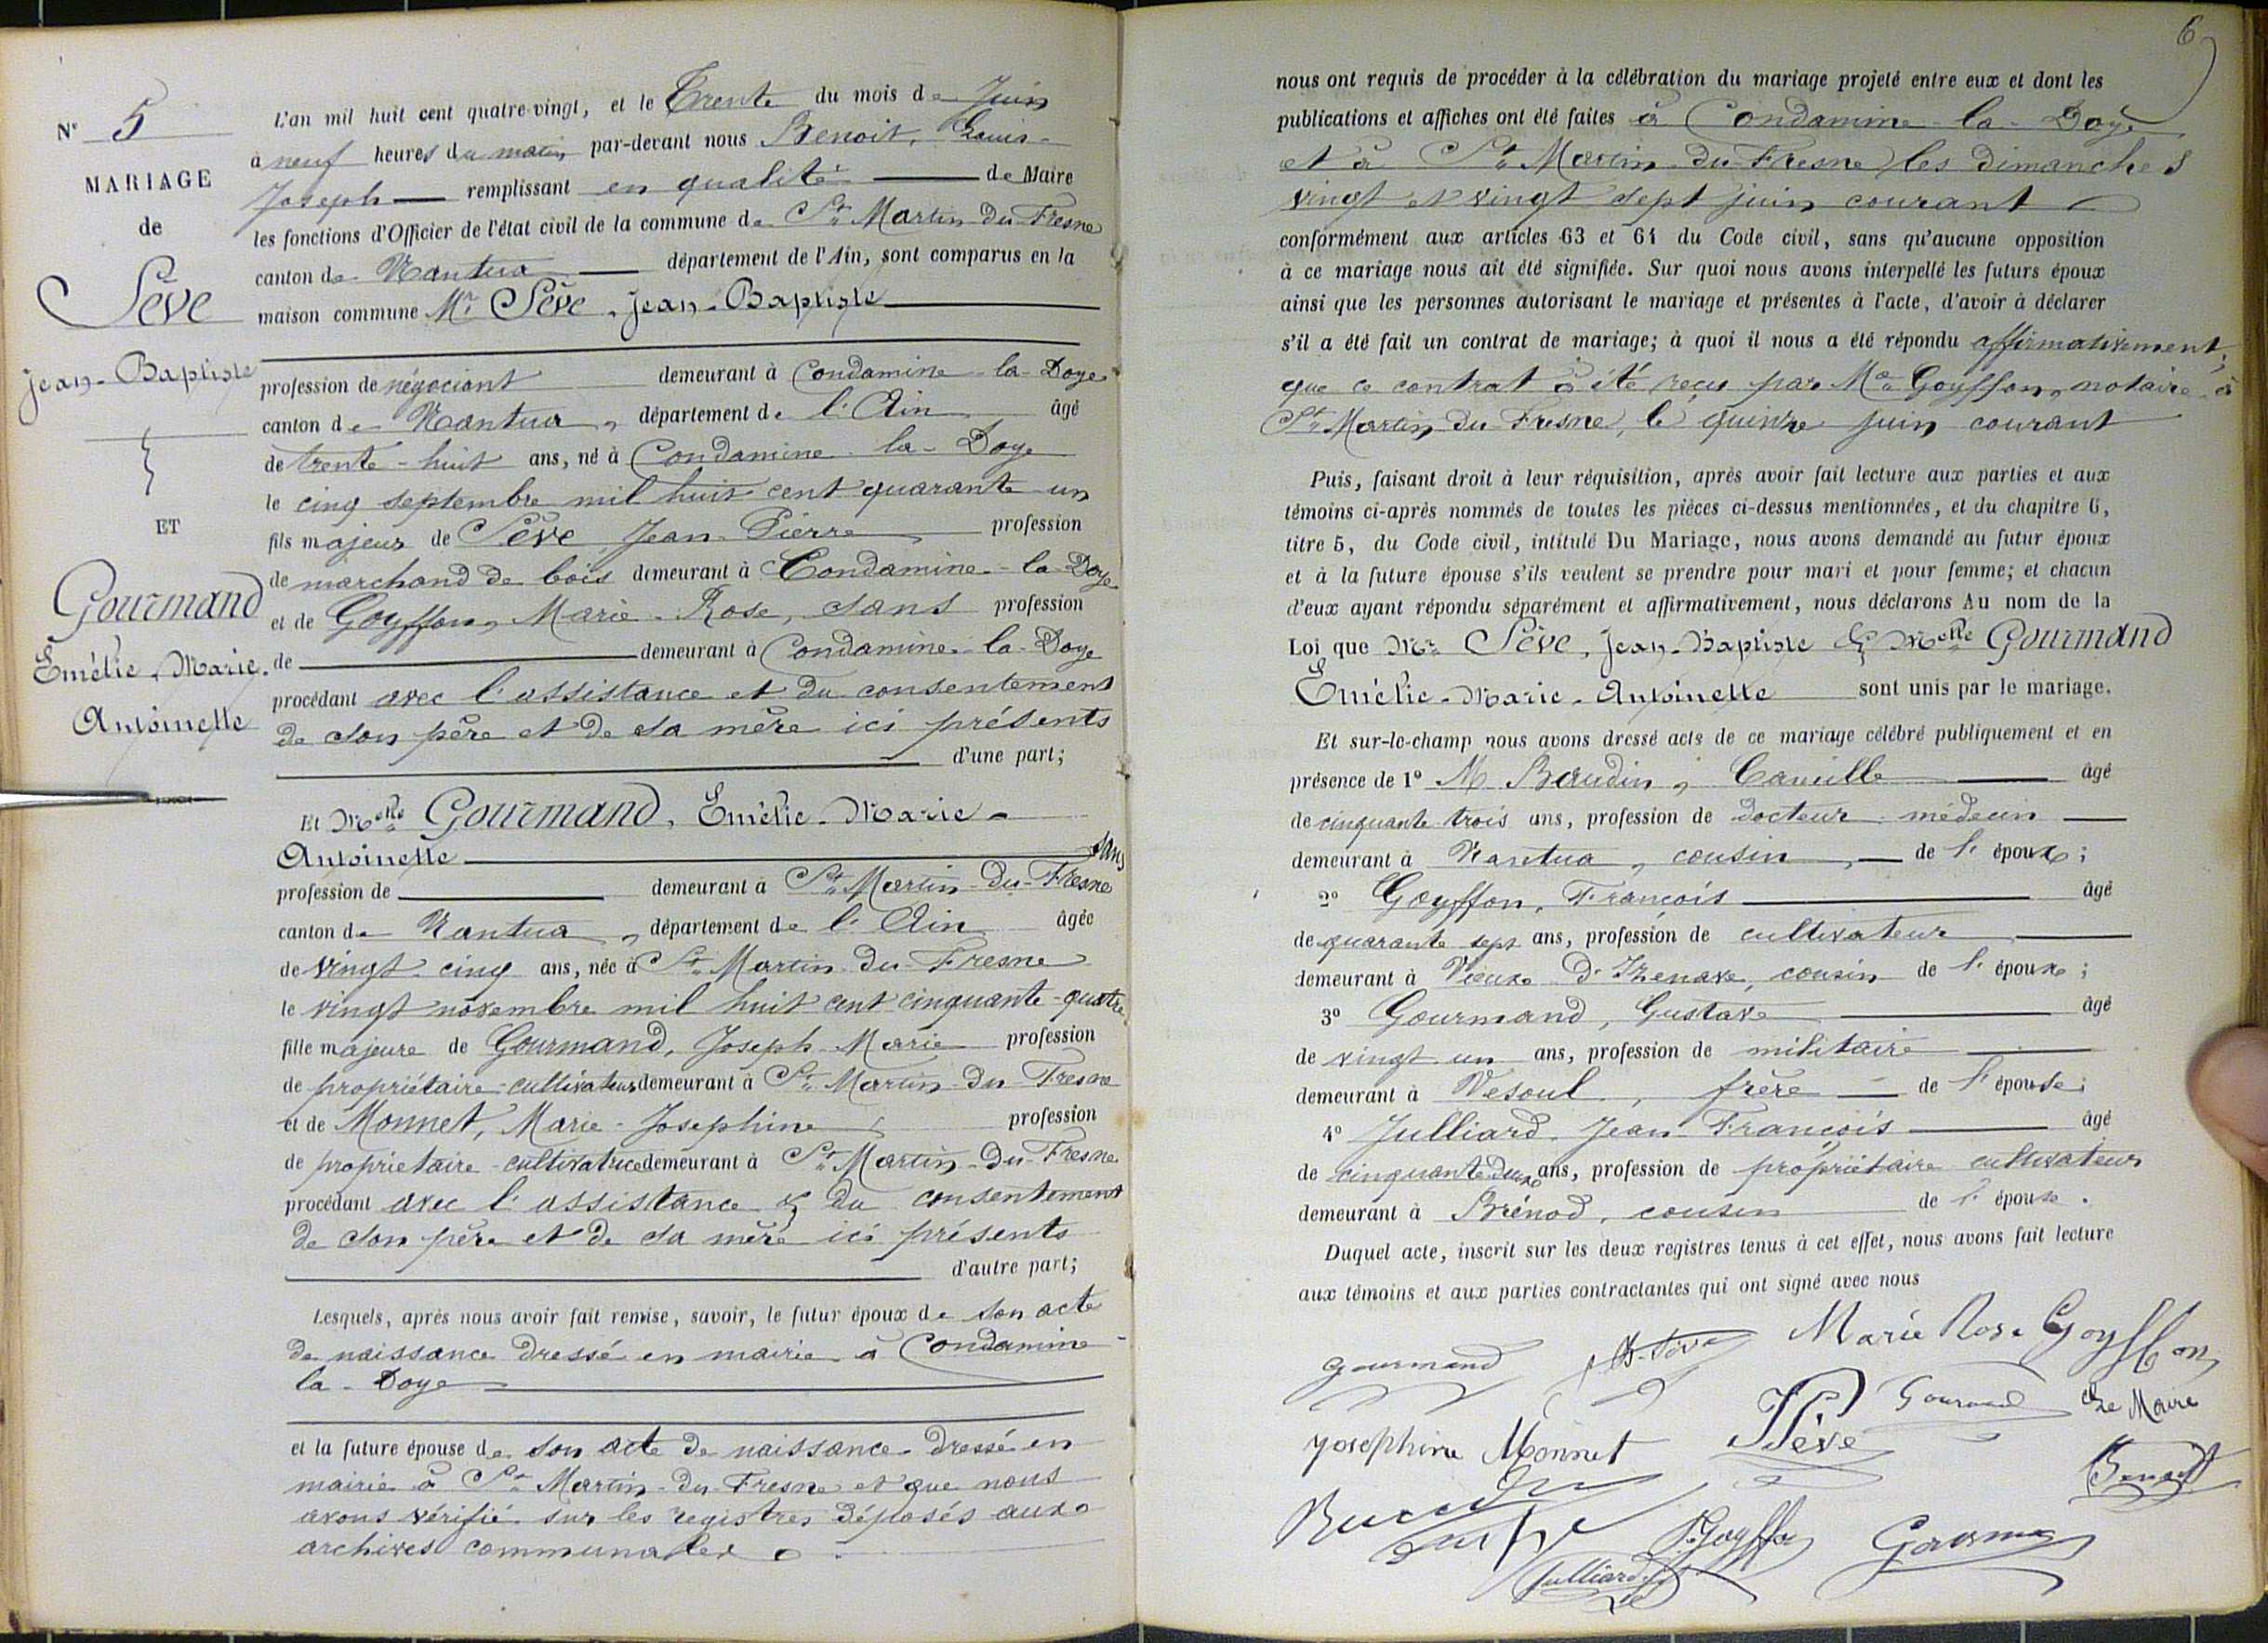 N° 5
MARIAGE
de
Sève
Jean-Baptiste
ET
Gourmand
Emélie-Marie-
Antoinette
L'an mil huit cent quatre-vingt, et le Trente du mois de Juin
à neuf heures du matin par-devant nous Benoit, Louis-
Joseph remplissant en qualité de Maire
les fonctions d'Officier de l'état civil de la commune de St Martin-du-Fresne
canton de Nantua département de l'Ain, sont comparus en la
maison commune Mr Sève, Jean-Baptiste
profession de négociant demeurant à Condamine-la-Doye
canton de Nantua, département de l'Ain âgé
de trente-huit ans, né à Condamine-la-Doye
le cinq septembre mil huit cent quarante-un
fils majeur de Sève Jean-Pierre profession
de marchand de bois demeurant à Condamine-la-Doye
et de Goyffon, Marie-Rose, sans profession
de demeurant à Condamine-la-Doye
procédant avec l'assistance et du consentement
de son père et de sa mère ici présents
d'une part;
Et Melle Gourmand, Emélie-Marie-
Antoinette sans
profession de demeurant à St Martin-du-Fresne
canton de Nantua, département de l'Ain âgée
de vingt-cinq ans, née à St Martin-du-Fresne
le vingt novembre mil huit cent cinquante-quatre
fille majeure de Gourmand, Joseph-Marie profession
de propriétaire-cultivateur demeurant à St Martin-du-Fresne
et de Monnet, Marie-Josephine profession
de proprietaire-cultivatrice demeurant à St Martin-du-Fresne
procédant avec l'assistance & du consentement
de son père et de sa mère ici présents
d'autre part;
Lesquels, après nous avoir fait remise, savoir, le futur époux de son acte
de naissance dressé en mairie à Condamine-
la-Doye
et la future épouse de son acte de naissance dressé en
mairie à St Martin-du-Fresne et que nous
avons vérifié sur les registres déposés aux
archives communales.
6
nous ont requis de procéder à la célébration du mariage projeté entre eux et dont les
publications et affiches ont été faites à Condamine-la-Doye
et à St Martin-du-Fresne, les dimanches
vingt et vingt sept juin courant
conformément aux articles 63 et 64 du Code civil, sans qu'aucune opposition
à ce mariage nous ait été signifiée. Sur quoi nous avons interpellé les futurs époux
ainsi que les personnes autorisant le mariage et présentes à l'acte, d'avoir à déclarer
s'il a été fait un contrat de mariage; à quoi il nous a été répondu affirmativement,
que ce contrat à été reçu par Me Goyffon, notaire à
St Martin-du-Fresne, le quinze juin courant
Puis, faisant droit à leur réquisition, après avoir fait lecture aux parties et aux
témoins ci-après nommés de toutes les pièces ci-dessus mentionnées, et du chapitre 6,
titre 5, du Code civil, intitulé Du Mariage, nous avons demandé au futur époux
et à la future épouse s'ils veulent se prendre pour mari et pour femme; et chacun
d'eux ayant répondu séparément et affirmativement, nous déclarons Au nom de la
Loi que Mr Sève, Jean-Baptiste & Melle Gourmand
Emélie-Marie-Antoinette sont unis par le mariage.
Et sur-le-champ nous avons dressé acte de ce mariage célébré publiquement et en
présence de 1° M Baudin, Camille âgé
de cinquante trois ans, profession de docteur-médecin
demeurant à Nantua, cousin de l'époux;
2° Goyffon, François âgé
de quarante sept ans, profession de cultivateur
demeurant à Vieux-d'Izenave, cousin de l'époux;
3° Gourmand, Gustave âgé
de vingt un ans, profession de militaire
demeurant à Vesoul, frère de l'épouse;
4° Julliard Jean-François âgé
de cinquante deux ans, profession de propriétaire cultivateur
demeurant à Brénod, cousin de l'épouse.
Duquel acte, inscrit sur les deux registres tenus à cet effet, nous avons fait lecture
aux témoins et aux parties contractantes qui ont signé avec nous
Gourmand Marie Rose Goyffon
Josephine Monnet Sève Gourmand Le Maire
Benoit
F. Goyffon
Julliard